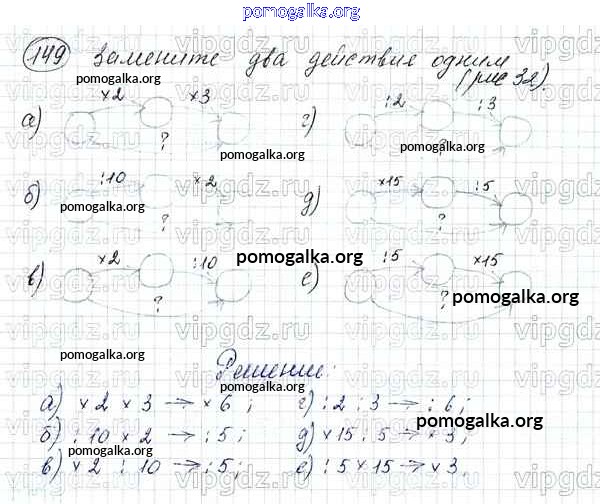 pomogalka.org
149 Замените два действия одним
pomogalka.org (рис 32).
а) ×2 ×3 ? г) :2 :3 ?
pomogalka.org pomogalka.org
б) :10 ×2 ? д) ×15 :5 ?
pomogalka.org pomogalka.org
pomogalka.org
в) ×2 :10 ? е) :5 ×15 ?
pomogalka.org
pomogalka.org
Решение:
а) ×2 ×3 → ×6; г) :2 :3 → :6;
pomogalka.org
б) :10 ×2 → :5; д) ×15 :5 → ×3;
pomogalka.org
в) ×2 :10 → :5; е) :5 ×15 → ×3.
vipgdz.ru